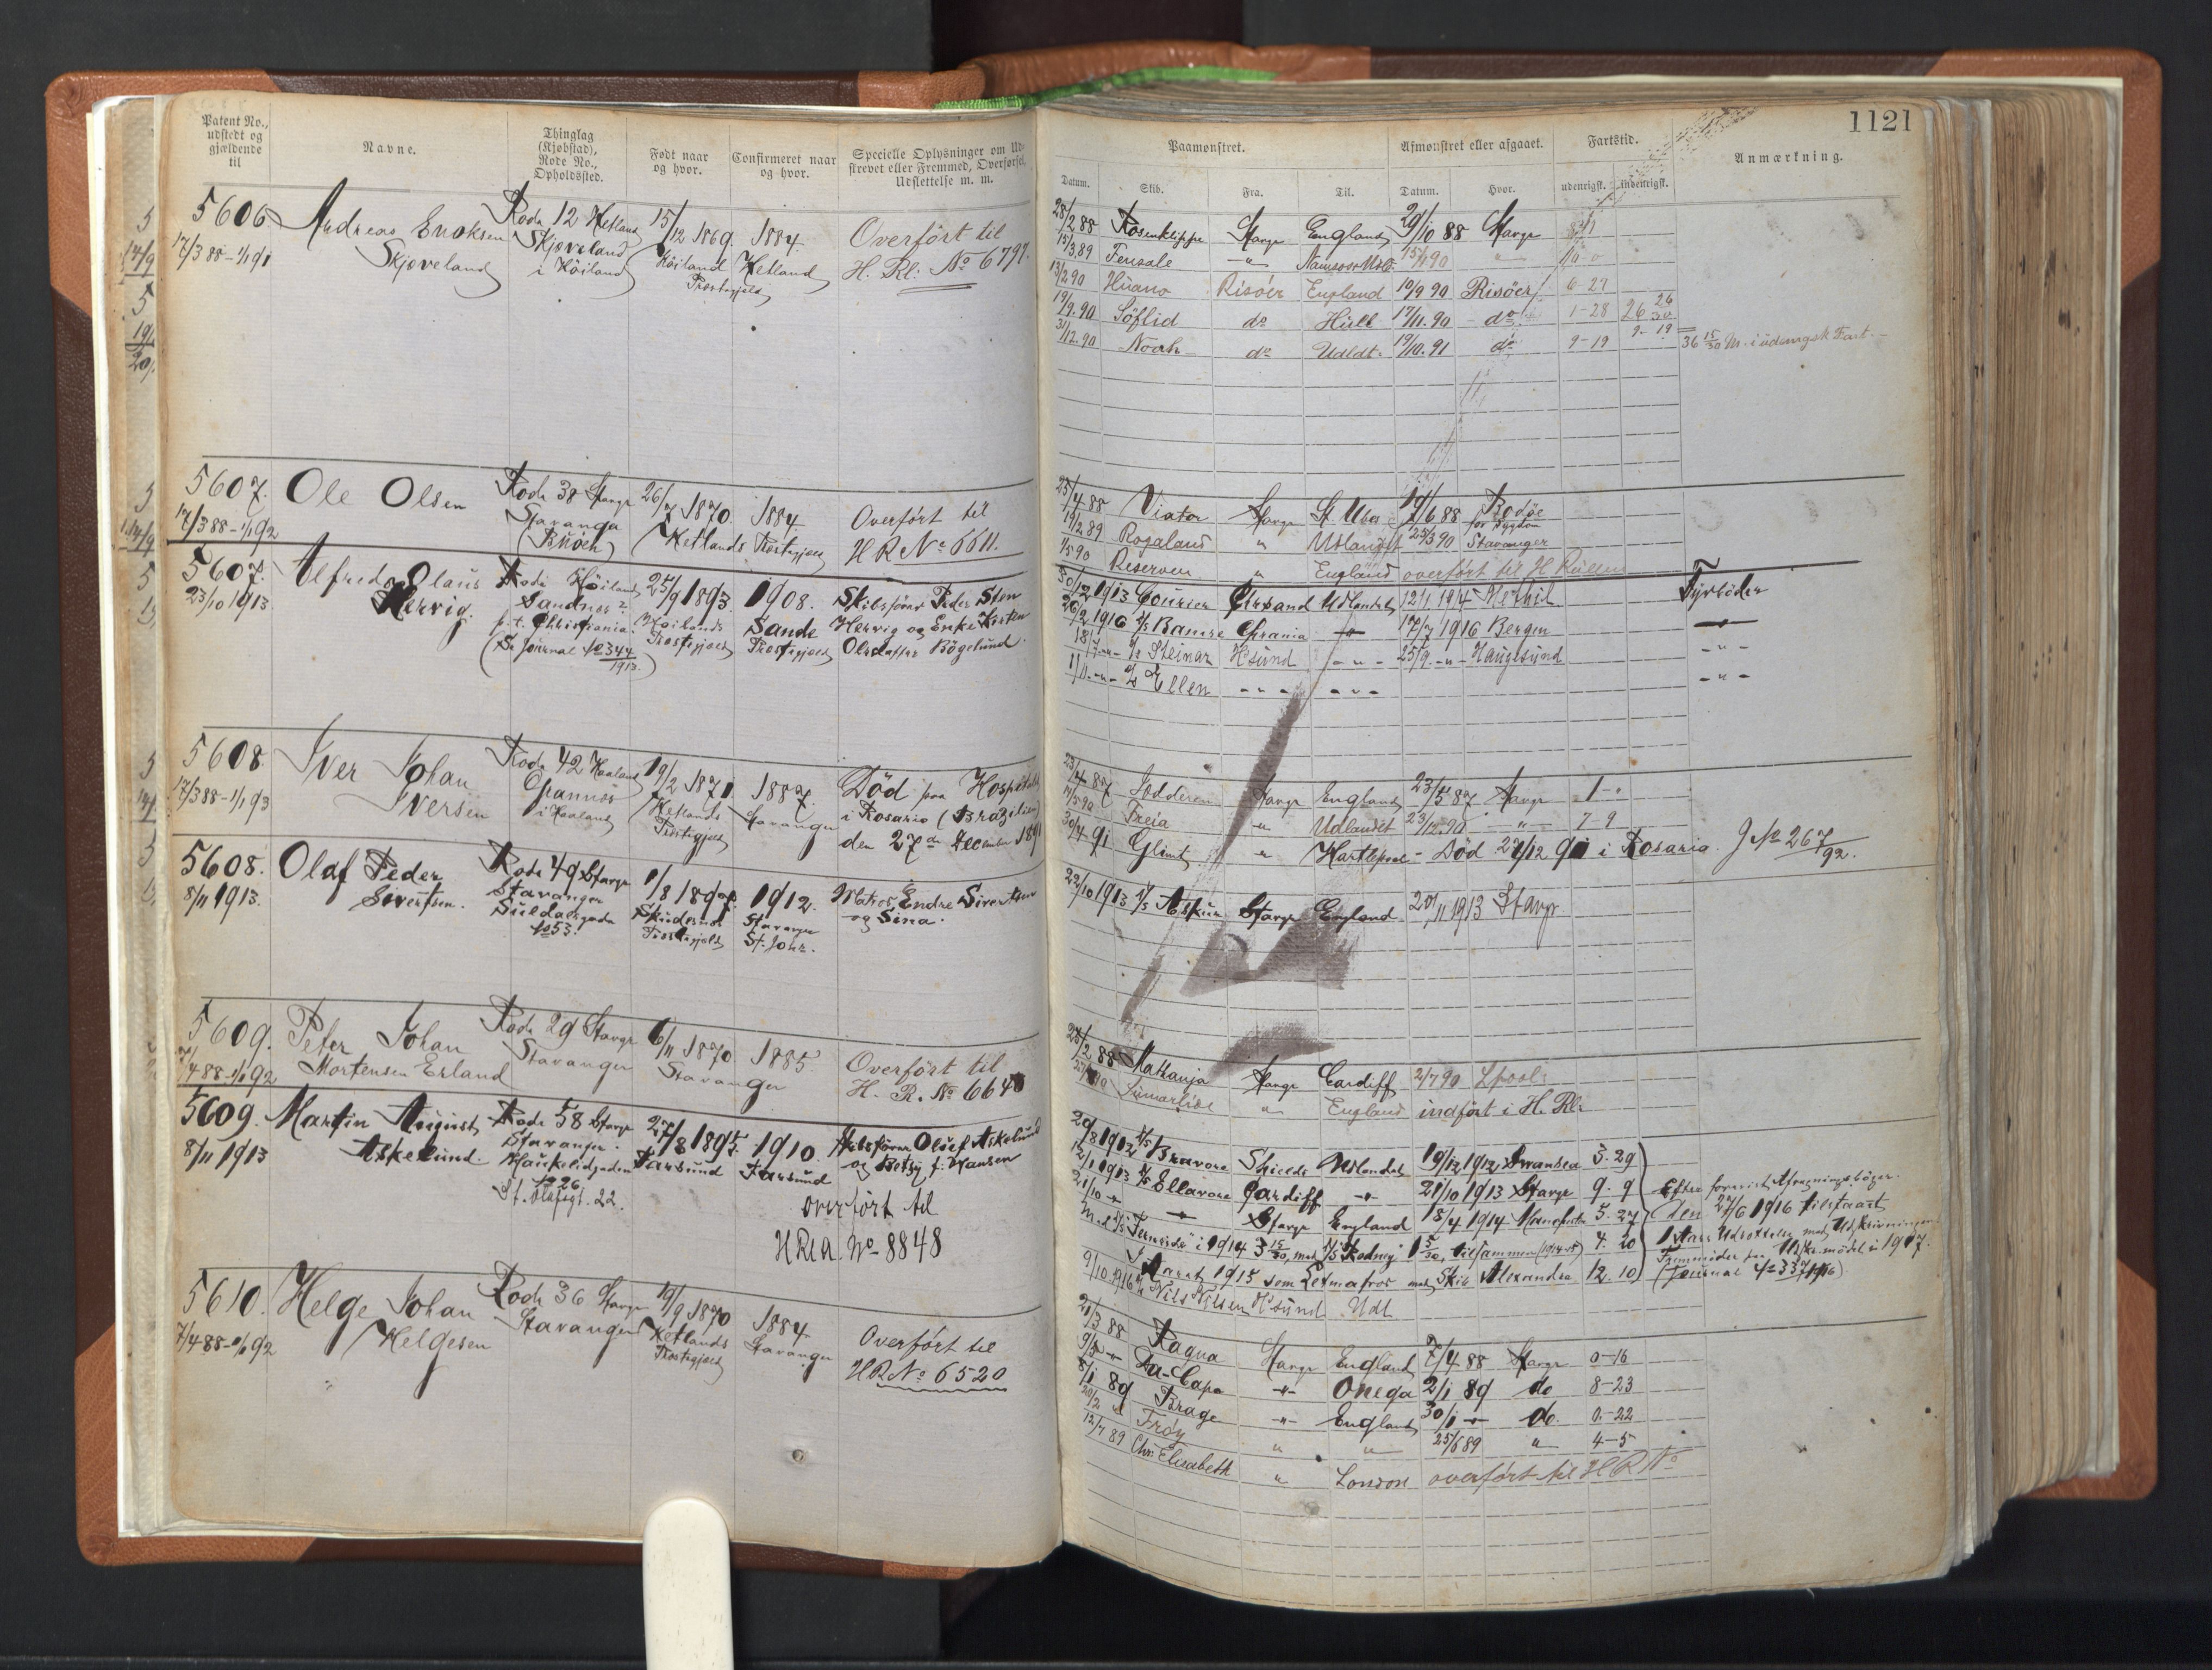 Patent No., udstedt og gjældende til
Navne.
Thinglag (Kjøbstad), Rode No., Opholdssted.
Født naar og hvor.
Confirmeret naar og hvor.
Specielle Oplysninger om Udskrevet eller Fremmed, Overførsel, Udslettelse m. m.
5606
17/3 88 – 1/1 91
Andreas Enoksen
Skjæveland
Rode 12 Hetland
Skjæveland
i Höiland
15/12 1869.
Höiland
Præstegjeld
1884
Hetland
Overført til
H. Rl. No 6797.
5607.
17/3 88 – 1/1 92
Ole Olsen
Rode 38 Stavgr
Stavanger
26/7 1870.
Hetlands
Præstegjeld
1884
Overført til
H R No 6611.
5607.
23/10 1913
Alfred Olaus
Hervig.
Rode Höiland
Sandnes
p. t. Christiania.
(Se Journal No 344/1913.)
25/9 1893.
Höilands
Præstegjeld
1908.
Sande
Præstegjeld
Skibsfører Peder Sten
Hervig og Enke Kirsten
Bögelund
5608
17/3 88 – 1/1 93
Iver Johan
Iversen
Rode 42 Haaland
i Haaland
19/2 1871.
Hetlands
Præstegjeld
1887.
Stavanger
Död paa Hospitalet
i Rosario (Brazilien)
den 27de December 1891
5608.
8/11 1913.
Olaf Peder
Sivertsen.
Rode 49 Stavgr
Stavanger
Suldalsgaden
No 53.
1/8 1897.
Skudenes
Præstegjeld
1912.
Stavanger
St. Joh.
Matros Endre Sivertsen
og Sina.
5609.
7/4 88 – 1/1 92
Peter Johan
Mortensen Erland
Rode 29 Stavgr
Stavanger
6/11 1870
Stavanger
1885.
Overført til
H. R. No 6640
5609.
8/11 1913
Martin August
Askelund.
Rode 58 Stavgr
Stavanger.
Haukeligaden
No 26
St. Olafsgt. 22.
27/8 1895.
Farsund
1910.
Farsund
Skibsfører Oluf Askelund
og Betsy f. Hansen
overført til
H Rl A. No 8848
5610.
7/4 88 – 1/1 92
Helge Johan
Helgesen
Rode 36 Stavgr
Stavanger
19/9 1870
Hetlands
Præstegjeld
1884
Stavanger
Overført til
H R No 6520
1121
Paamønstret.
Afmønstret eller afgaaet.
Fartstid.
Anmærkning.
Datum. Skib. Fra. Til. Datum. Hvor. udenrigsk. indenrigsk.
28/2 88 Rosenklippe Stavgr England 29/10 88 Stavgr
15/3 89 Fensale " 15/1 90 "
13/2 90 Huano Risöer England 10/9 90 Risöer 6–27
19/9.90 Söflid do Hull 17/11.90 do 1–28 26 26/30
31/12.90 Noah do Udldt. 19/10.91 do 9–19 9–19 36 15/30 M. i udenrigsk Fart.
25/4 88 Viator Stavgr St. Ubes 19/6 88 Bodöe
for Sygdom
19/2 89 Rogaland " Udlandet 23/3 90 Stavanger
1/5 90 Reserven " England overført til H Rullen
30/12 1913 Courier Chrsand Udlandet 12/1 1914 Methil Fyrböder
26/2 1916 D/S Bamse Chrania 17/7 1916 Bergen
18/7 – " – D/S Steinar H'sund – " – 25/9 – " – Haugesund – " –
11/11 – " – D/S Ellen – " – – " – – " –
23/4 87 Jödderen Stavgr England 23/5 87 Stavgr 1 –
14/5 90 Freia " Udlandet 23/12.90 " 7–9
30/4 91 Glimt " Hartlepool Död 27/12 91 i Rosario. J No 267/92.
22/10 1913 D/S Askur Stavgr England 20/11 1913 Stavgr
25/2 88 Stavgr Cardiff 2/7 90 Lpool
Sumarlide " England indført i H. Rl.
29/8 1912 D/S Bravore Shields Udlandet 19/12 1912 Swansea 3. 29
12/1 1913 D/S Ellavore Cardiff 21/10 1913 Stavgr 9. 9
21/10 Stavgr England 18/4 1914 Manchester 5. 27
Med D/S "Fernside" i 1914 3 15/30, med D/S "Rodney" 1 5/30, tilsammen (1914–15) 4. 20
Aaret 1915 som Letmatros med Skib Alexandra 12. 10
Efter forevist Afregningsböger.
den 27/6 1916 tilstaaet
1 Aars Udsættelse med Udskrivningen
Fremmöder paa Udskr.mödet i 1917.
(Journal No 337/1916)
9/10 1916 Nils Nilsen H'sund Udl
21/3 88 Ragna Stavgr England 7/4 88 Stavgr 0–16
9/5 Da-Capo Onega 2/1 89 do 8–23
8/1 89 Brage England 30/1 do. 0–22
20/2 Fröy " " 25/6 89 " 4–5
12/7 89 Chr. Elisabeth " London overført til H R No